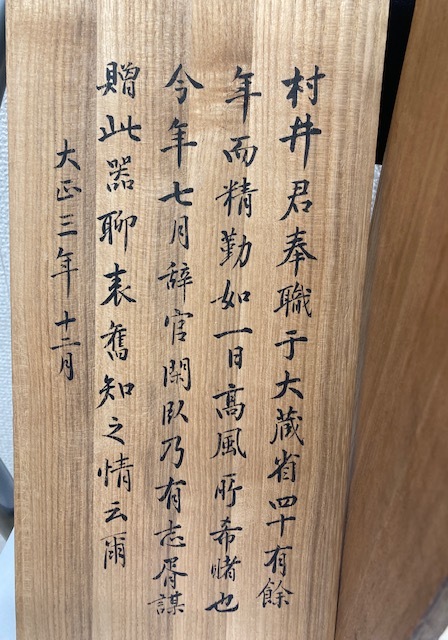 村井君奉職于大蔵省四十有餘
年而精勤如一日高風所希睹也
今年七月辞官閑臥乃有志胥謀
贈此器聊表舊知之情云爾
大正三年十二月